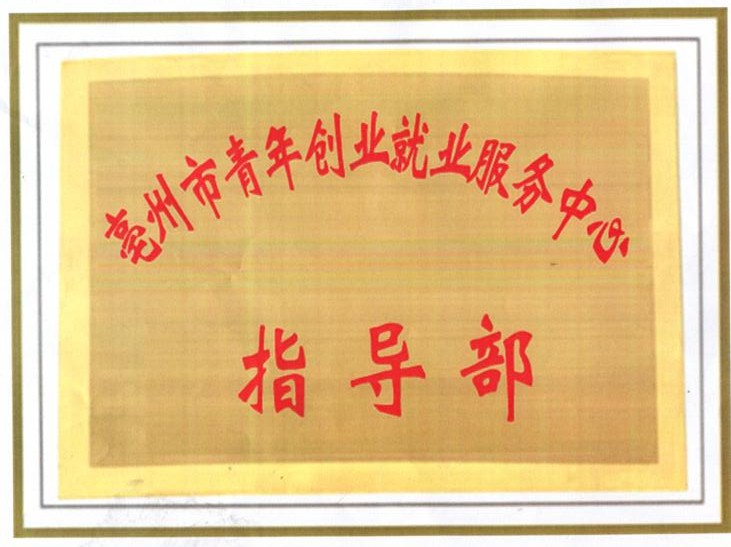 亳州市青年创业就业服务中心
指导部